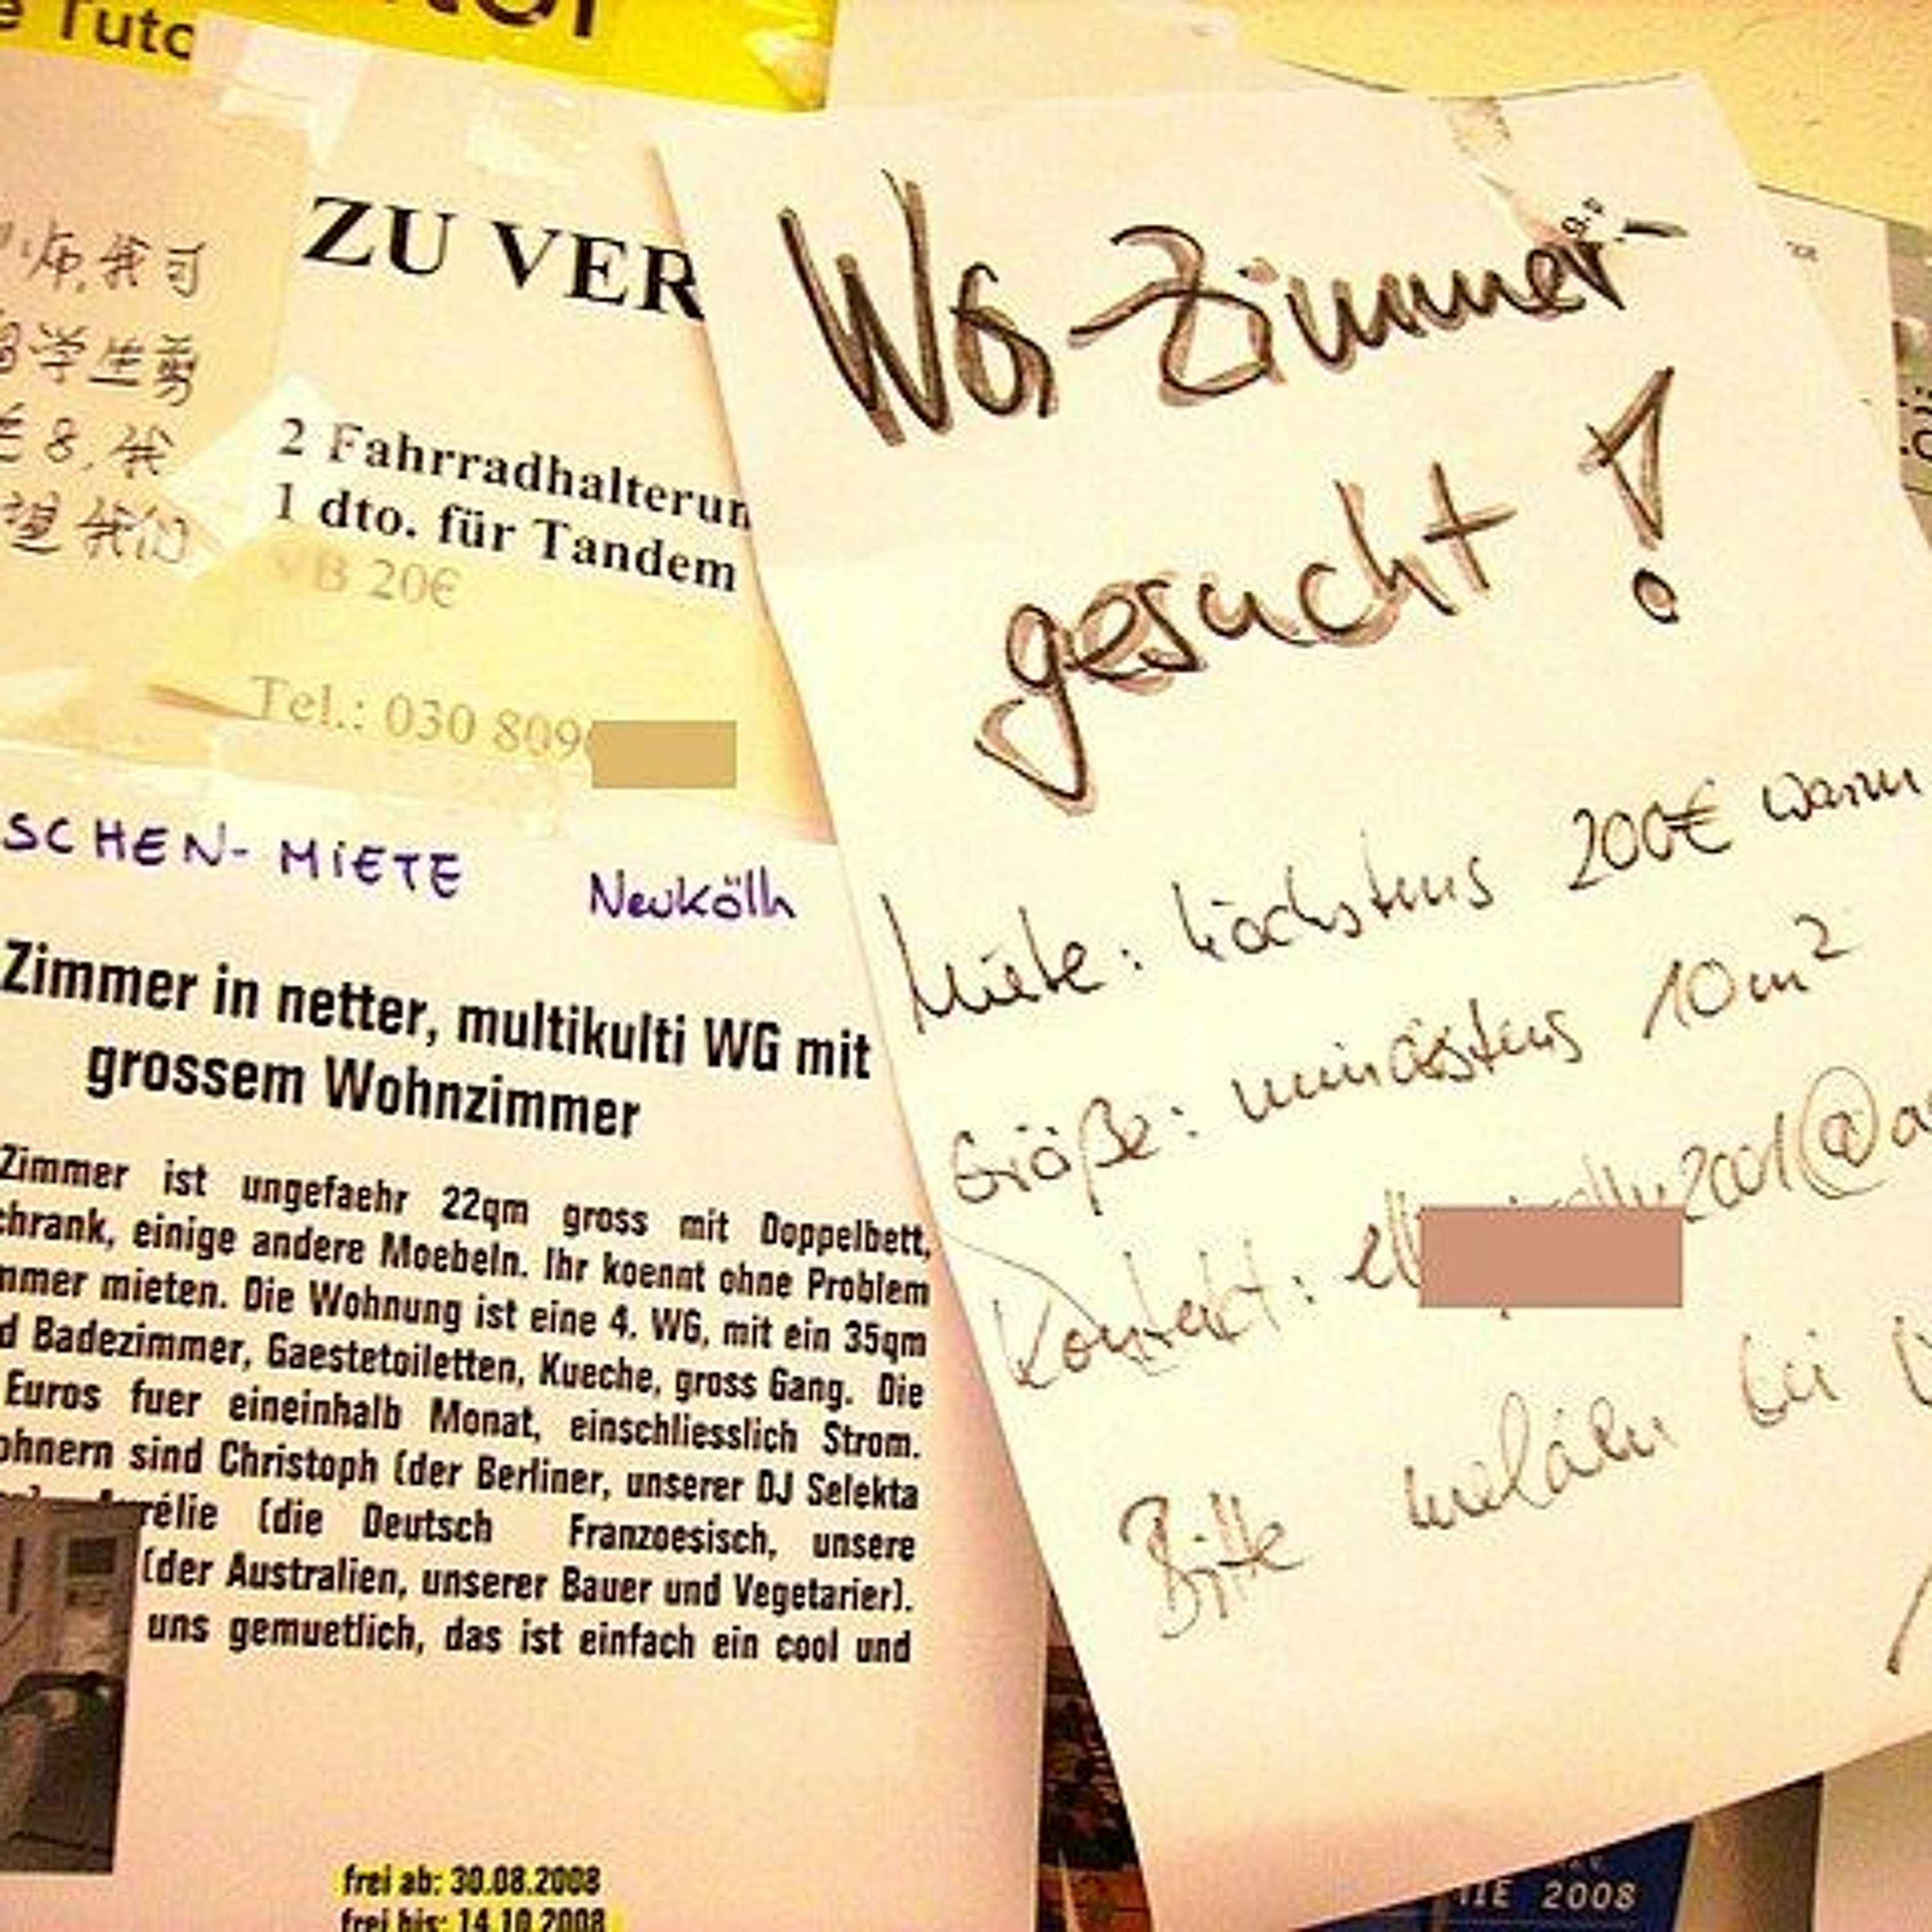 e Tuto
师,我可
留学生剪
8,我
望我们
ZU VER
2 Fahrradhalterun
1 dto. für Tandem
VB 20€
Tel.: 030 809
SCHEN-MiETE Neukölln
Zimmer in netter, multikulti WG mit
grossem Wohnzimmer
Zimmer ist ungefaehr 22qm gross mit Doppelbett,
chrank, einige andere Moebeln. Ihr koennt ohne Problem
mmer mieten. Die Wohnung ist eine 4. WG, mit ein 35qm
d Badezimmer, Gaestetoiletten, Kueche, gross Gang. Die
Euros fuer eineinhalb Monat, einschliesslich Strom.
ohnern sind Christoph (der Berliner, unserer DJ Selekta
rélie (die Deutsch Franzoesisch, unsere
(der Australien, unserer Bauer und Vegetarier).
uns gemuetlich, das ist einfach ein cool und
frei ab: 30.08.2008
frei bis: 14.10.2008
WG-Zimmer
gesucht!
Miete: höchstens 200€ warm
Größe: mindestens 10m²
Kontakt: ell 2001@a
Bitte melden bei
IE 2008